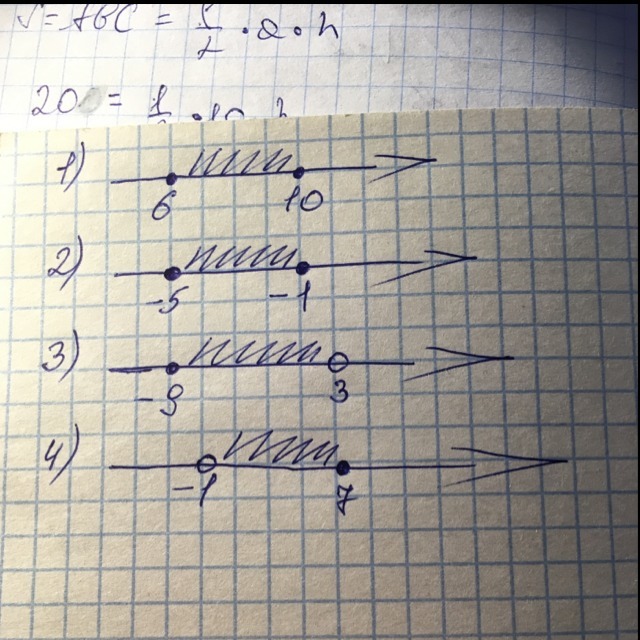 S=ABC = 1/2 · a · h
20 = 1/2 · 10 · h
1)
6 10
2)
-5 -1
3)
-9 3
4)
-1 7